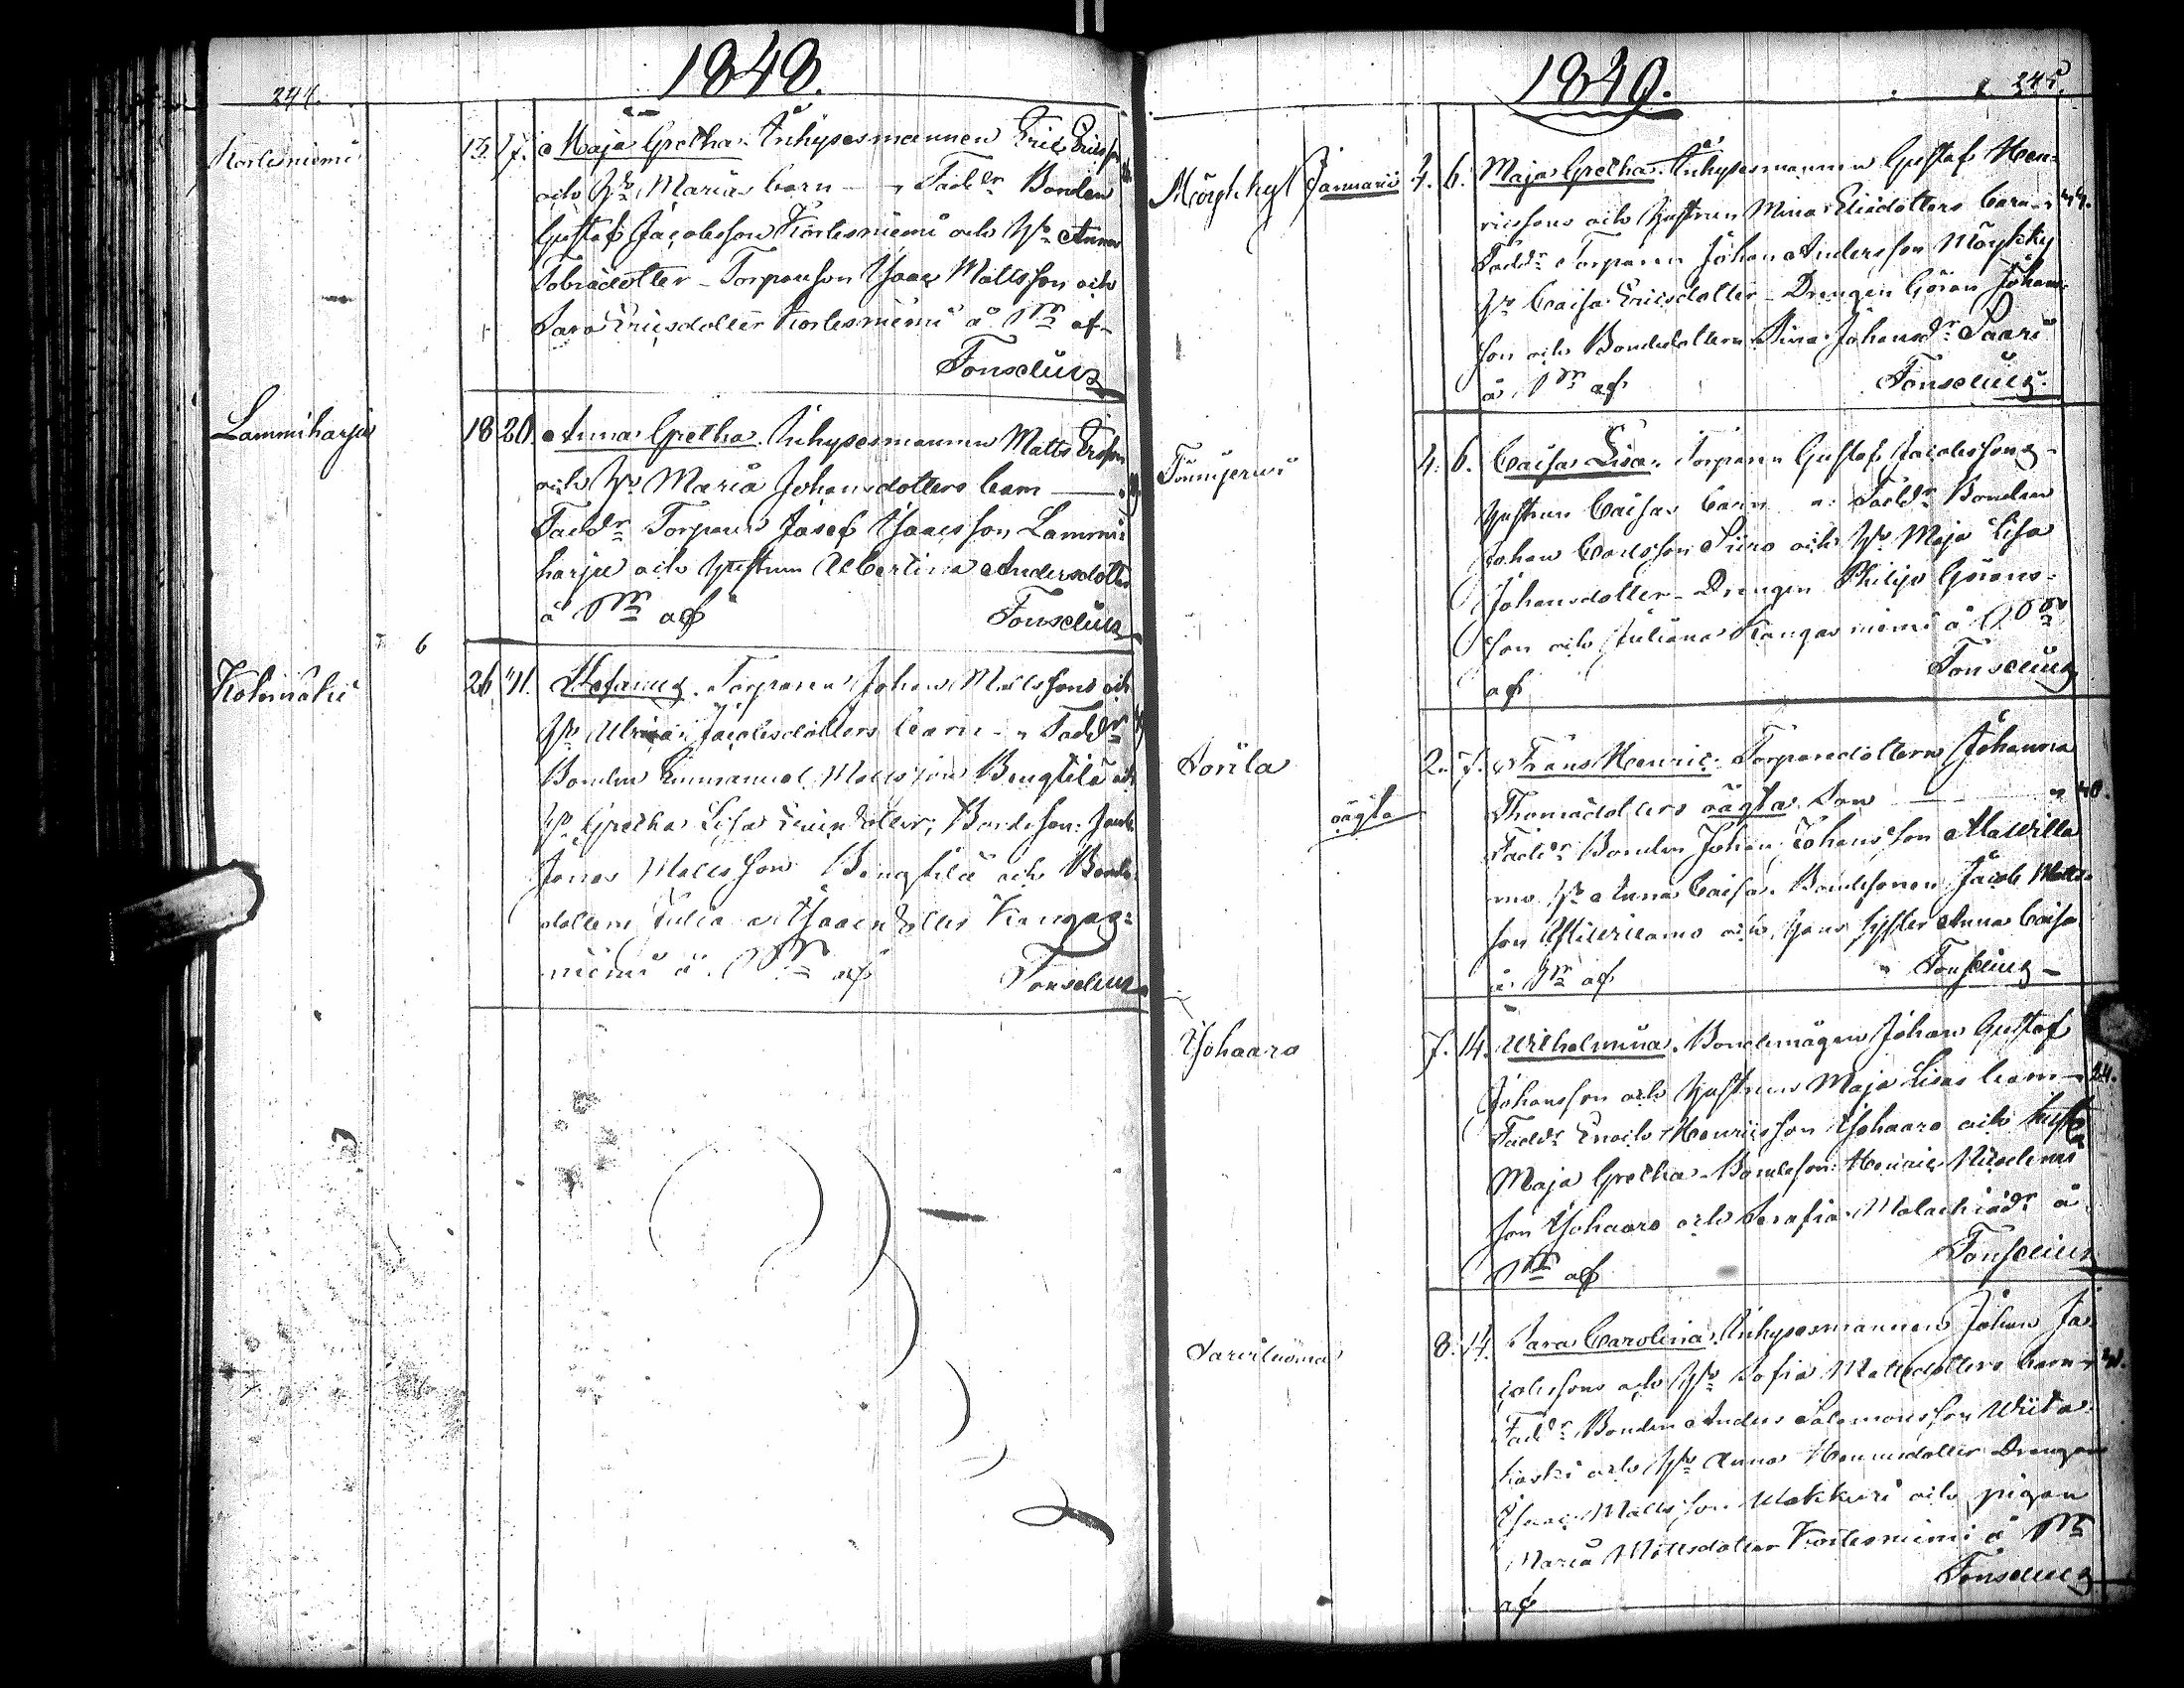 244.
1848.
Korlesniemi 15. 17. Maja Gretha. Inhysesmannen Eric Ericss
och H:o Maria barn - Fadd:r Bonden
Gustaf Jacobsson Korlesniemi och H:o Anna
Tobiadotter - Torparson Isaac Mattsson och
Sara Ericsdotter Korlesniemi å P:m af
Fonselius
Lammiharju 18 20. Anna Gretha. Inhysesmannen Matts Ersson
och H:o Maria Johansdotters barn
Fadd:r Torparen Josef Isaacsson Lammi:
harju och hustrun Albertina Andersdotter
å P:m af Fonselius
6
Kolmäki 26 31. Stefanus. Torparen Johan Mattssons och
H:o Ulrica Jacobsdotters barn - Fadd:r
Bonden Emmanuel Mattsson Bengtilä och
H:o Gretha Lisa; Bondeson:
Jonas Mattsson Bengtilä och Bonde
dottern Julia Isaacsdotter Kangas:
niemi å P:m af Fonselius
1849.
245.
Möykky Januarii 4. 6. Maja Gretha. Inhysesmannen Gustaf Hen:
ricssons och hustrun Mina Eliædotters barn
Fadd:r Torparen Johan Andersson Möykky
H:o Caisa Ericsdotter - Drengen Göran Johans:
son och Bondedottern Stina Johansd:r Saari
å P:m af Fonselius.
4. 6. Caisa Lisa. Torparen Gustaf Jacobssons
hustrun Caisas barn Fadd:r Bonden
Johan Carlsson Siiro och H:o Maja Lisa
Johansdotter - Drengen Philip Görans:
son och Juliana Kangasniemi å P:m
af Fonselius
Sorila 2. 7. Frans Henric. Torparedottern Johanna
oägta Thomædotters oägta Son 40.
Fadd:r Bonden Johan Johansson
H:o Anna Caisa. Bondesonen Jacob Matts
son och hans syster Anna Caisa
å P:m af Fonselius
Ylihaaro 7. 14. Wilhelmina. Bondemågen Johan Gustaf
Johansson och hustrun Maja Lisas barn 24.
Fadd:r Enoch Henricsson Ylihaaro och hust
Maja Gretha. Bondeson: Henric
son Ylihaaro och Serafia Malachiæd:r å
P:m af Fonselius
8. 14. Sara Carolina. Inhysesmannen Johan Ja
cobssons och H:o Sofia Mattsdotters barn
Fadd:r Bonden Anders Salomonsson Wiita:
koski och H:o Anna Henricsdotter Drengen
Isaac Mattsson Wakkuri och pigan
Maria Mattsdotter Korlesniemi å P:m
af Fonselius